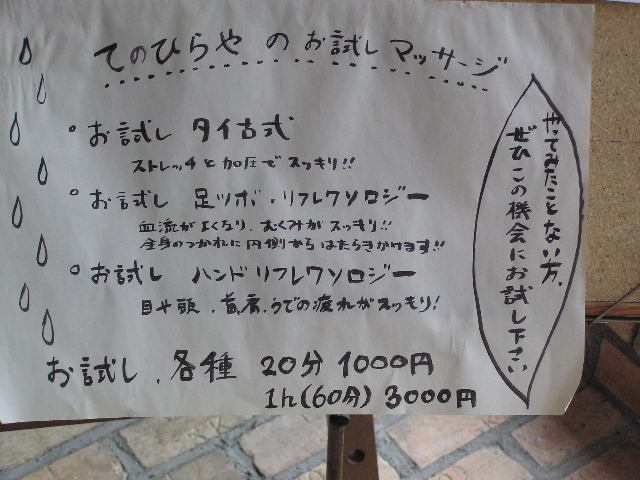 てのひらや の お試し マッサージ
お試し タイ古式
ストレッチと加圧でスッキリ!!
お試し 足ツボ・リフレクソロジー
血流がよくなり、むくみがスッキリ!!
全身のつかれに内側からはたらきかけます!!
お試し ハンドリフレクソロジー
目や頭、首、肩、うでの疲れがスッキリ!
お試し、各種 20分 1000円
1h(60分) 3000円
やってみたことない方、
ぜひこの機会にお試し下さい